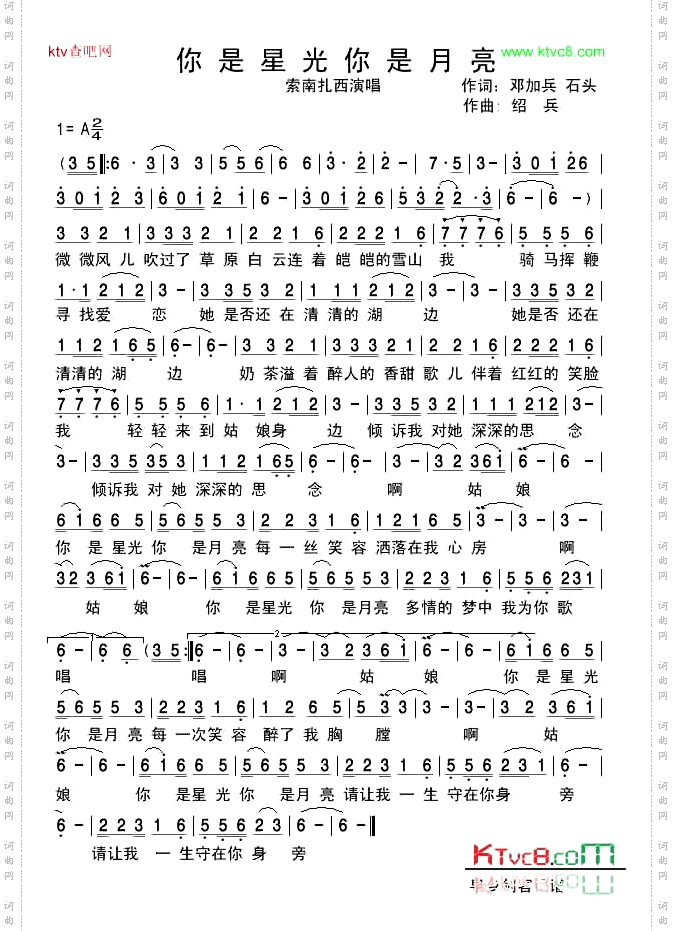 ktv查吧网
你是星光你是月亮
www.ktvc8.com
索南扎西演唱
作词：邓加兵 石头
作曲：绍 兵
1=A 2/4
(3 5 |: 6 · 3 | 3 3 | 5 5 6 | 6 6 | 3 · 2 | 2 - | 7 · 5 | 3 - | 3 0 1 | 2 6 |
3 0 1 | 2 3 | 6 0 1 | 2 1 | 6 - | 3 0 1 | 2 6 | 5 3 2 | 2 · 3 | 6 - | 6 - )|
3 2 3 | 1 2 | 3 3 2 1 | 2 1 2 | 6 1 | 2 2 2 1 6 | 7 7 7 6 | 5 5 5 6 |
微 微风 儿 吹过了 草 原 白 云连 着 皑 皑的雪山 我 骑 马挥 鞭
1 · 2 1 2 | 3 - | 3 3 5 3 2 | 1 1 2 1 2 | 3 - | 3 3 5 3 5 3 |
寻 找爱 恋 她 是否还 在 清 清的 湖 边 她是否 还在
1 1 2 1 6 5 | 6 - | 6 - | 3 2 3 3 | 2 1 2 | 3 3 2 2 1 | 2 1 6 1 | 2 2 1 1 6 |
清清的 湖 边 奶 茶溢 着 醉人的 香甜 歌 儿 伴着 红红的 笑脸
7 7 7 6 | 5 5 5 6 | 1 · 2 1 2 | 3 - | 3 3 5 3 2 | 1 1 2 2 1 2 |
我 轻轻来 到 姑 娘身 边 倾 诉我 对她 深深的思 念
3 - | 3 3 5 3 5 3 | 1 1 2 1 6 5 | 6 - | 6 - | 3 - | 3 2 3 6 1 | 6 - | 6 - |
倾诉我 对她 深深的 思 念 啊 姑 娘
6 1 6 6 5 | 5 6 5 3 5 | 2 2 3 1 6 | 1 2 1 6 5 | 3 - | 3 - | 3 - |
你 是 星光 你 是月 亮 每 一 丝 笑 容 洒落在我 心 房 啊
3 2 3 6 1 | 6 - | 6 - | 6 1 6 6 5 | 5 6 5 3 5 | 2 2 3 1 6 | 5 5 6 2 3 1 |
姑 娘 你 是星光 你 是月亮 多情的 梦中 我为你 歌
6 - | 6 6 (3 5 :| 6 - | 6 - | 3 - | 3 2 3 6 1 | 6 - | 6 - | 6 1 6 6 5 |
唱 唱 啊 姑 娘 你 是 星 光
5 6 5 3 5 | 2 2 3 1 6 | 2 2 1 6 5 | 5 3 3 | 3 - | 3 - | 3 2 3 6 1 |
你 是 月亮 每 一次笑 容 醉 了 我 胸 膛 啊 姑
6 - | 6 - | 6 1 6 6 5 | 5 6 5 3 5 | 2 2 3 1 6 | 5 5 5 6 2 3 1 |
娘 你 是星 光 你 是 月 亮 请让我 一 生 守在你身 旁
6 - | 2 2 3 1 6 | 5 5 5 6 2 3 | 6 - | 6 - ‖
请让我 一生守在你 身 旁
KTvc8.com
词曲网